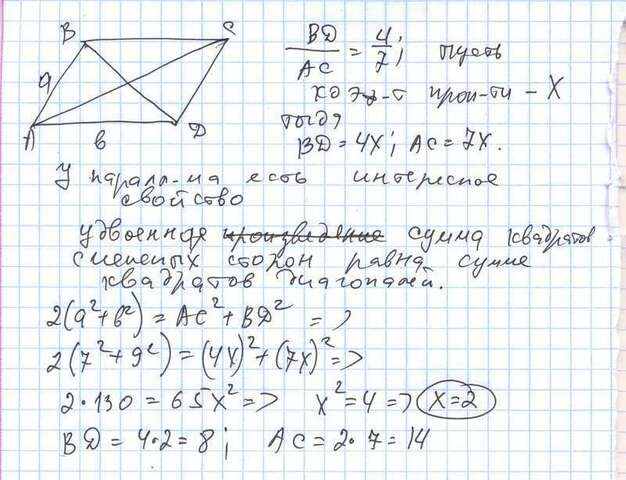 B C
a
A в D
BD/AC = 4/7; пусть
коэф-т проп-ти - X
тогда
BD = 4X; AC = 7X.
У паралл-ма есть интересное
свойство
удвоенная произведение сумма квадратов
смежных сторон равна сумме
квадратов диагоналей.
2(a²+b²) = AC² + BD² =>
2(7²+9²) = (4X)² + (7X)² =>
2·130 = 65X² => X² = 4 => X=2
BD = 4·2 = 8; AC = 2·7 = 14